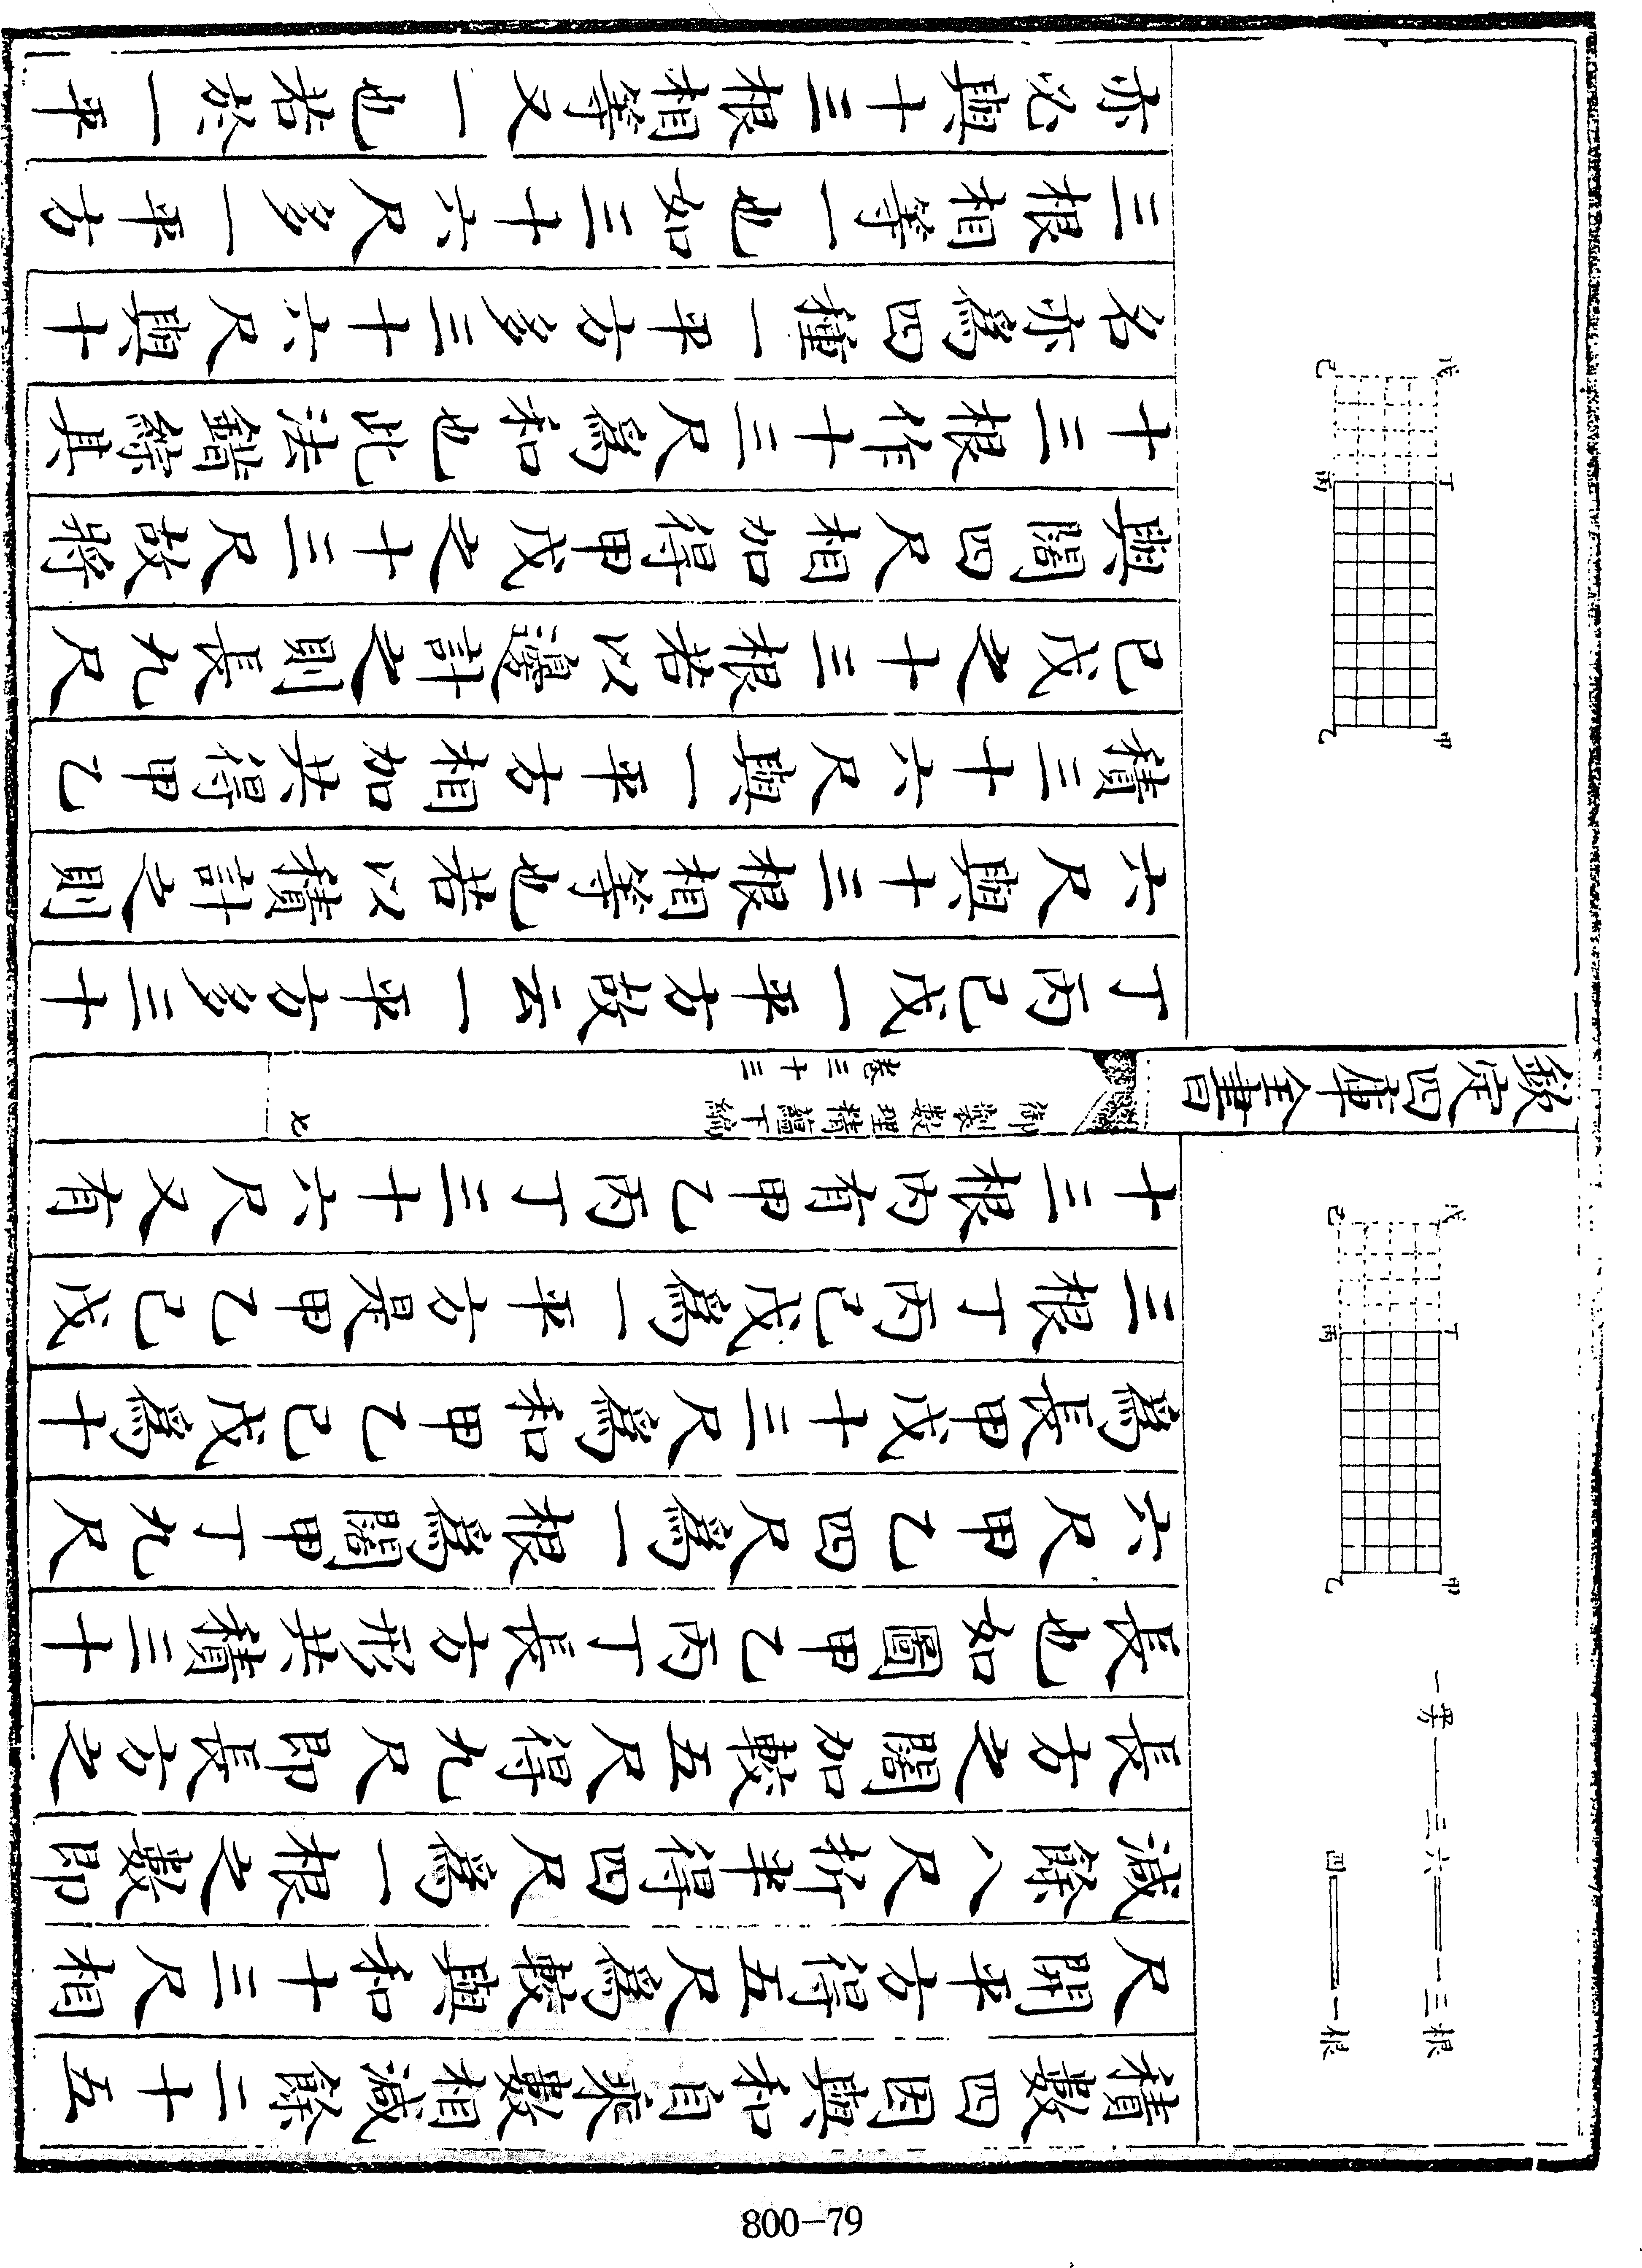 積數四因與和自乘數相減餘二十五
尺開平方得五尺爲較與和十三尺相
減餘八尺折半得四尺爲一根之數即
長方之闊加較五尺得九尺即長方之
長也如圖甲乙丙丁長方形共積三十
六尺甲乙四尺爲一根爲闊甲丁九尺
爲長甲戊十三尺爲和甲乙己戊爲十
三根丁丙己戊爲一平方是甲乙己戊
十三根內有甲乙丙丁三十六尺又有
一冪 三六 一三根
四 一根
戊 己
丁 丙
甲 乙
欽定四庫全書
御製數理精蘊下編
卷三十三
七
丁丙己戊一平方故云一平方多三十
六尺與十三根相等也若以積計之則
積三十六尺與一平方相加共得甲乙
己戊之十三根若以邊計之則長九尺
與闊四尺相加得甲戊之十三尺故將
十三根作十三尺爲和也此法錯綜其
名亦爲四種一平方多三十六尺與十
三根相等一也如三十六尺多一平方
亦必與十三根相等又一也若於一平
戊 己
丁 丙
甲 乙
800-79